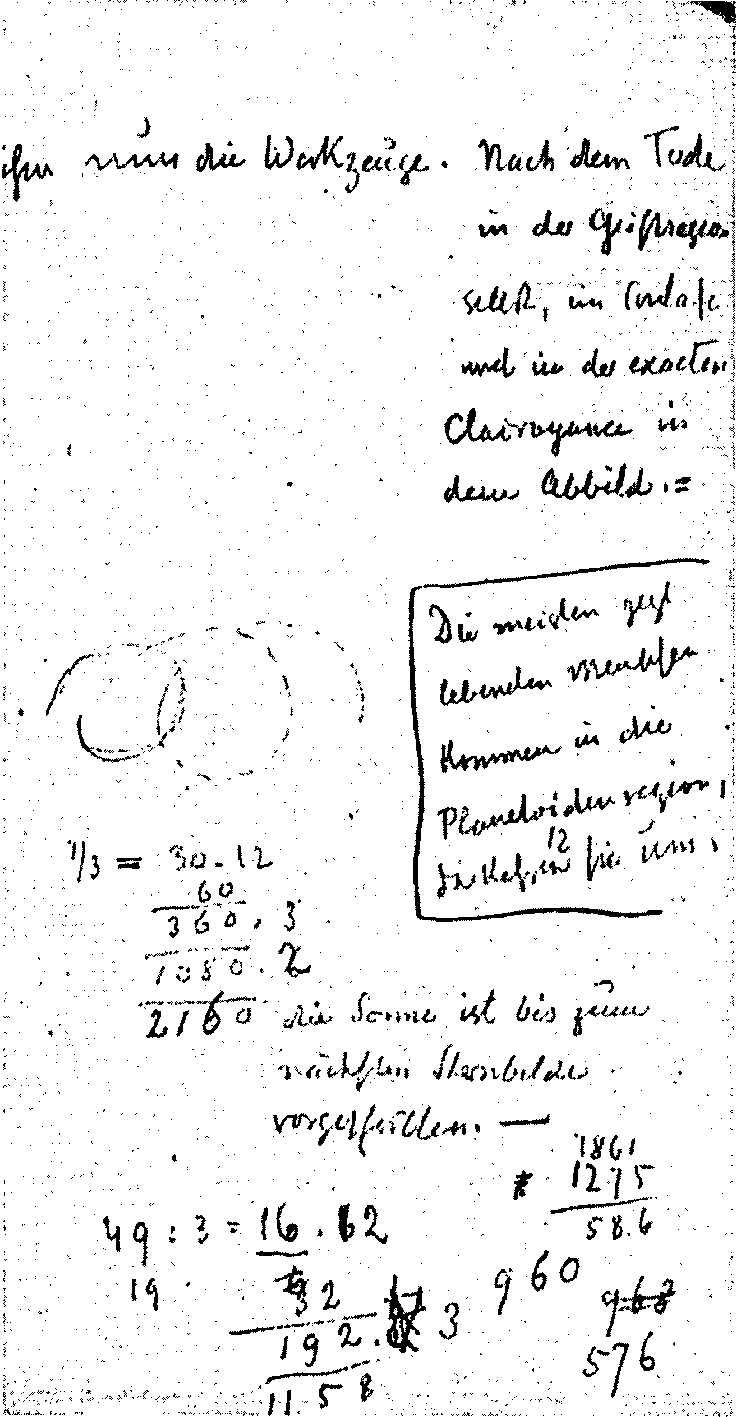 nun die Werkzeuge. Nach dem Tode
in der Geistregion
selbst, im
und in der exacten
Clairvoyance in
dem Abbild.=
Die meisten jetzt
lebenden Menschen
kommen in die
Planetoidenregion,
12
sie um.
1/3 = 30.12
60
360. 3
1080. 2
2160 die Sonne ist bis zum
nächsten Sternbilde
vorgeschritten. —
1861
1275
586
49 : 3 = 16 . 12
19
32
192. 3
1158
960
968
576